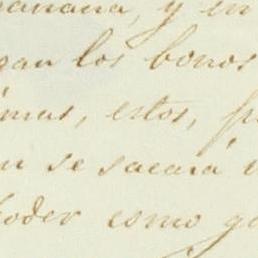 mañana, y en
gan los bonos
imas, estos, p
n se sacará
poder como g